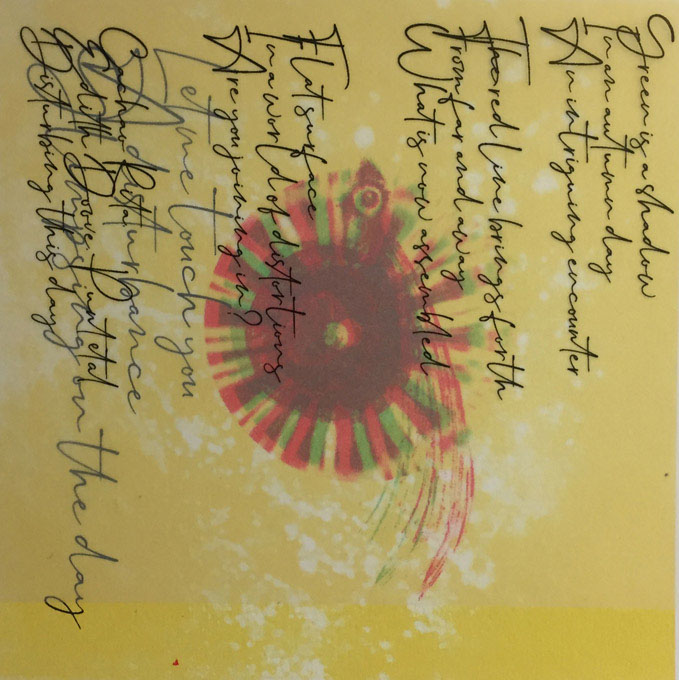 Green is a shadow
In an autumn day
An intriguing encounter
The red line brings forth
From far and away
What is now assembled
Flat surface
In a world of distortions
Are you joining in?
Let me touch you
A disturbance
on the day
Edith Doove
Disturbing this day